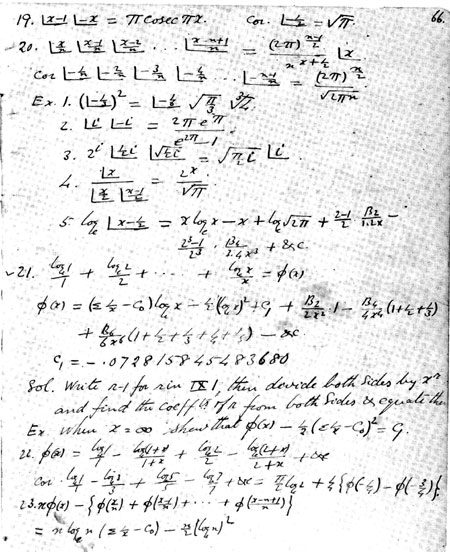 66.
19. |x-1 |-x = π cosec πx. Cor. |-½ = √π.
20. |x/n |x-1/n |x-2/n ... |x-n+1/n = (2π)^(n-1)/2 / n^(x+½) |x
Cor |-1/n |-2/n |-3/n |-4/n .... |-n-1/n = (2π)^(n/2) / √(2πn)
Ex. 1. (|-⅓)² = |-⅙ √(π/3) ∛2.
2. |i |-i = 2π e^π / e^(2π)-1
3. 2^i |½i |√½i = √(π/2 i) |i
4. |x / |x/2 |x-1/2 = 2^x / √π
5. log_e |x-½ = x log_e x - x + log_e √2π + 2-1/2 B₂/1.2x -
2³-1/2³ . B₄/3.4x³ + &c
21. log 1/1 + log 2/2 + ... + log x/x = φ(x)
φ(x) = (Σ 1/x - C₀) log_e x - ½(log_e x)² + C₁ + B₂/2x² . 1 - B₄/4x⁴ (1+½+⅓)
+ B₆/6x⁶ (1+½+⅓+¼+⅕) - &c
C₁ = -.072815845483680
Sol. Write r-1 for r in IX 1, then devide both sides by x^r
and find the coeff.ts of r from both sides & equate them
Ex. when x = ∞ show that φ(x) - ½(Σ 1/x - C₀)² = C₁
22. φ(x) = log 1/1 - log(1+x)/1+x + log 2/2 - log(2+x)/2+x + &c
Cor. log 1/1 - log 3/3 + log 5/5 - log 7/7 + &c = π/4 log 2 + ¼{φ(-¼) - φ(-¾)}
23. nφ(x) - {φ(x/n) + φ(x-1/n) + ... + φ(x-n+1/n)}
= n log_e n (Σ 1/x - C₀) - n/2 (log_e n)²